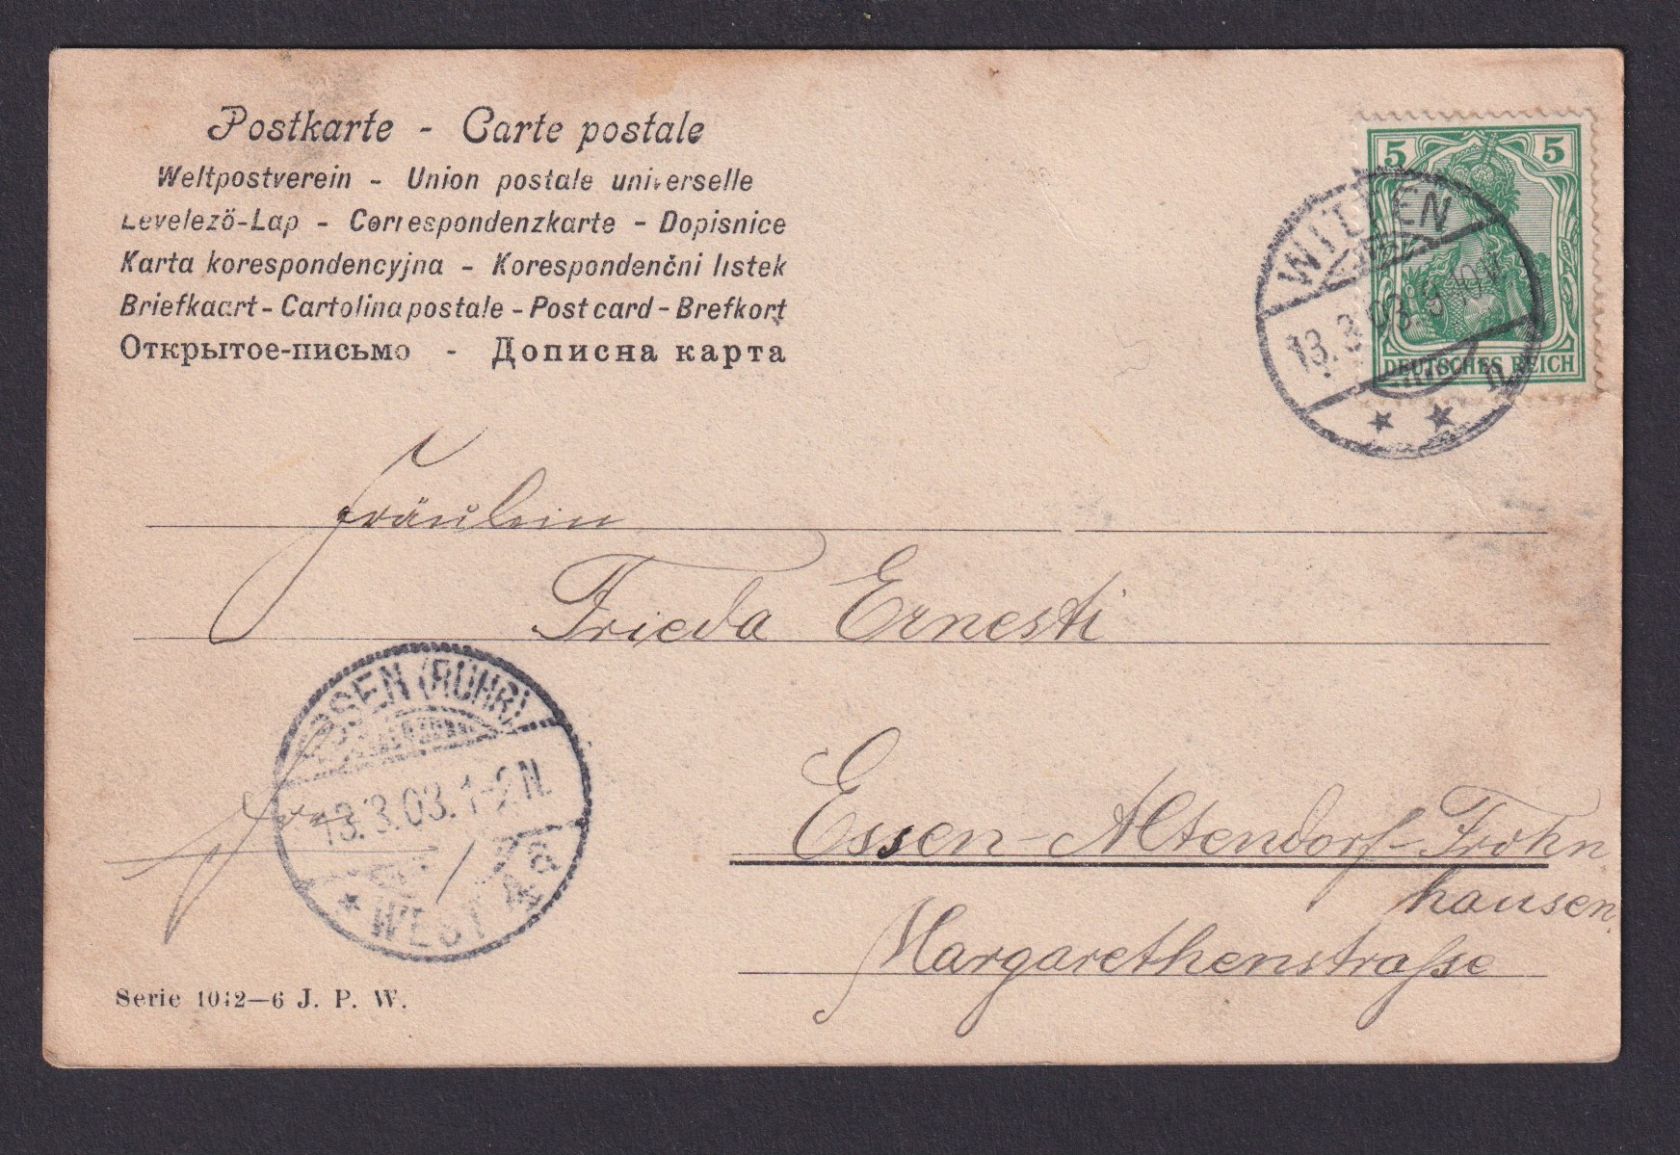 Postkarte - Carte postale
Weltpostverein - Union postale universelle
Levelező-Lap - Correspondenzkarte - Dopisnice
Karta korespondencyjna - Korespondenčni listek
Briefkaart - Cartolina postale - Post card - Brefkort
Открытое-письмо - Дописна карта
5 5
DEUTSCHES REICH
WITTEN
13.3.03.
Fräulein
Frieda Ernesti
ESSEN (RUHR)
13.3.03. 1-2N.
* WEST a
Essen-Altendorf-Frohn
hausen
Margarethenstraſse
Serie 1042—6 J. P. W.